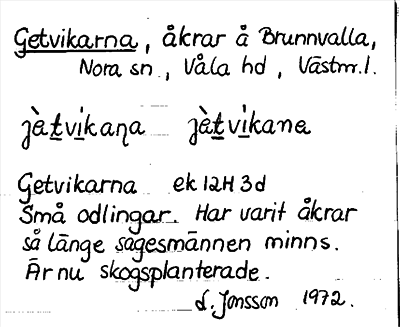 Getvikarna, åkrar å Brunnvalla,
Nora sn, Våla hd, Västm.l.
jèt̲vi̲kaɳa jèt̲vi̲kane
Getvikarna ek 12H 3d
Små odlingar. Har varit åkrar
så länge sagesmännen minns.
Är nu skogsplanterade.
L. Jonsson 1972.